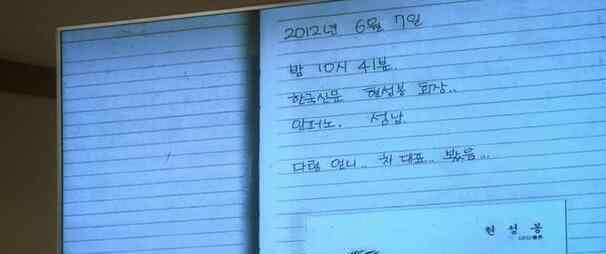 2012년 6월 7일
밤 10시 41분.
한국신문 현성봉 회장..
인퍼노. 성남.
다혜 언니.. 차 대표... 봤음...
현 성 봉